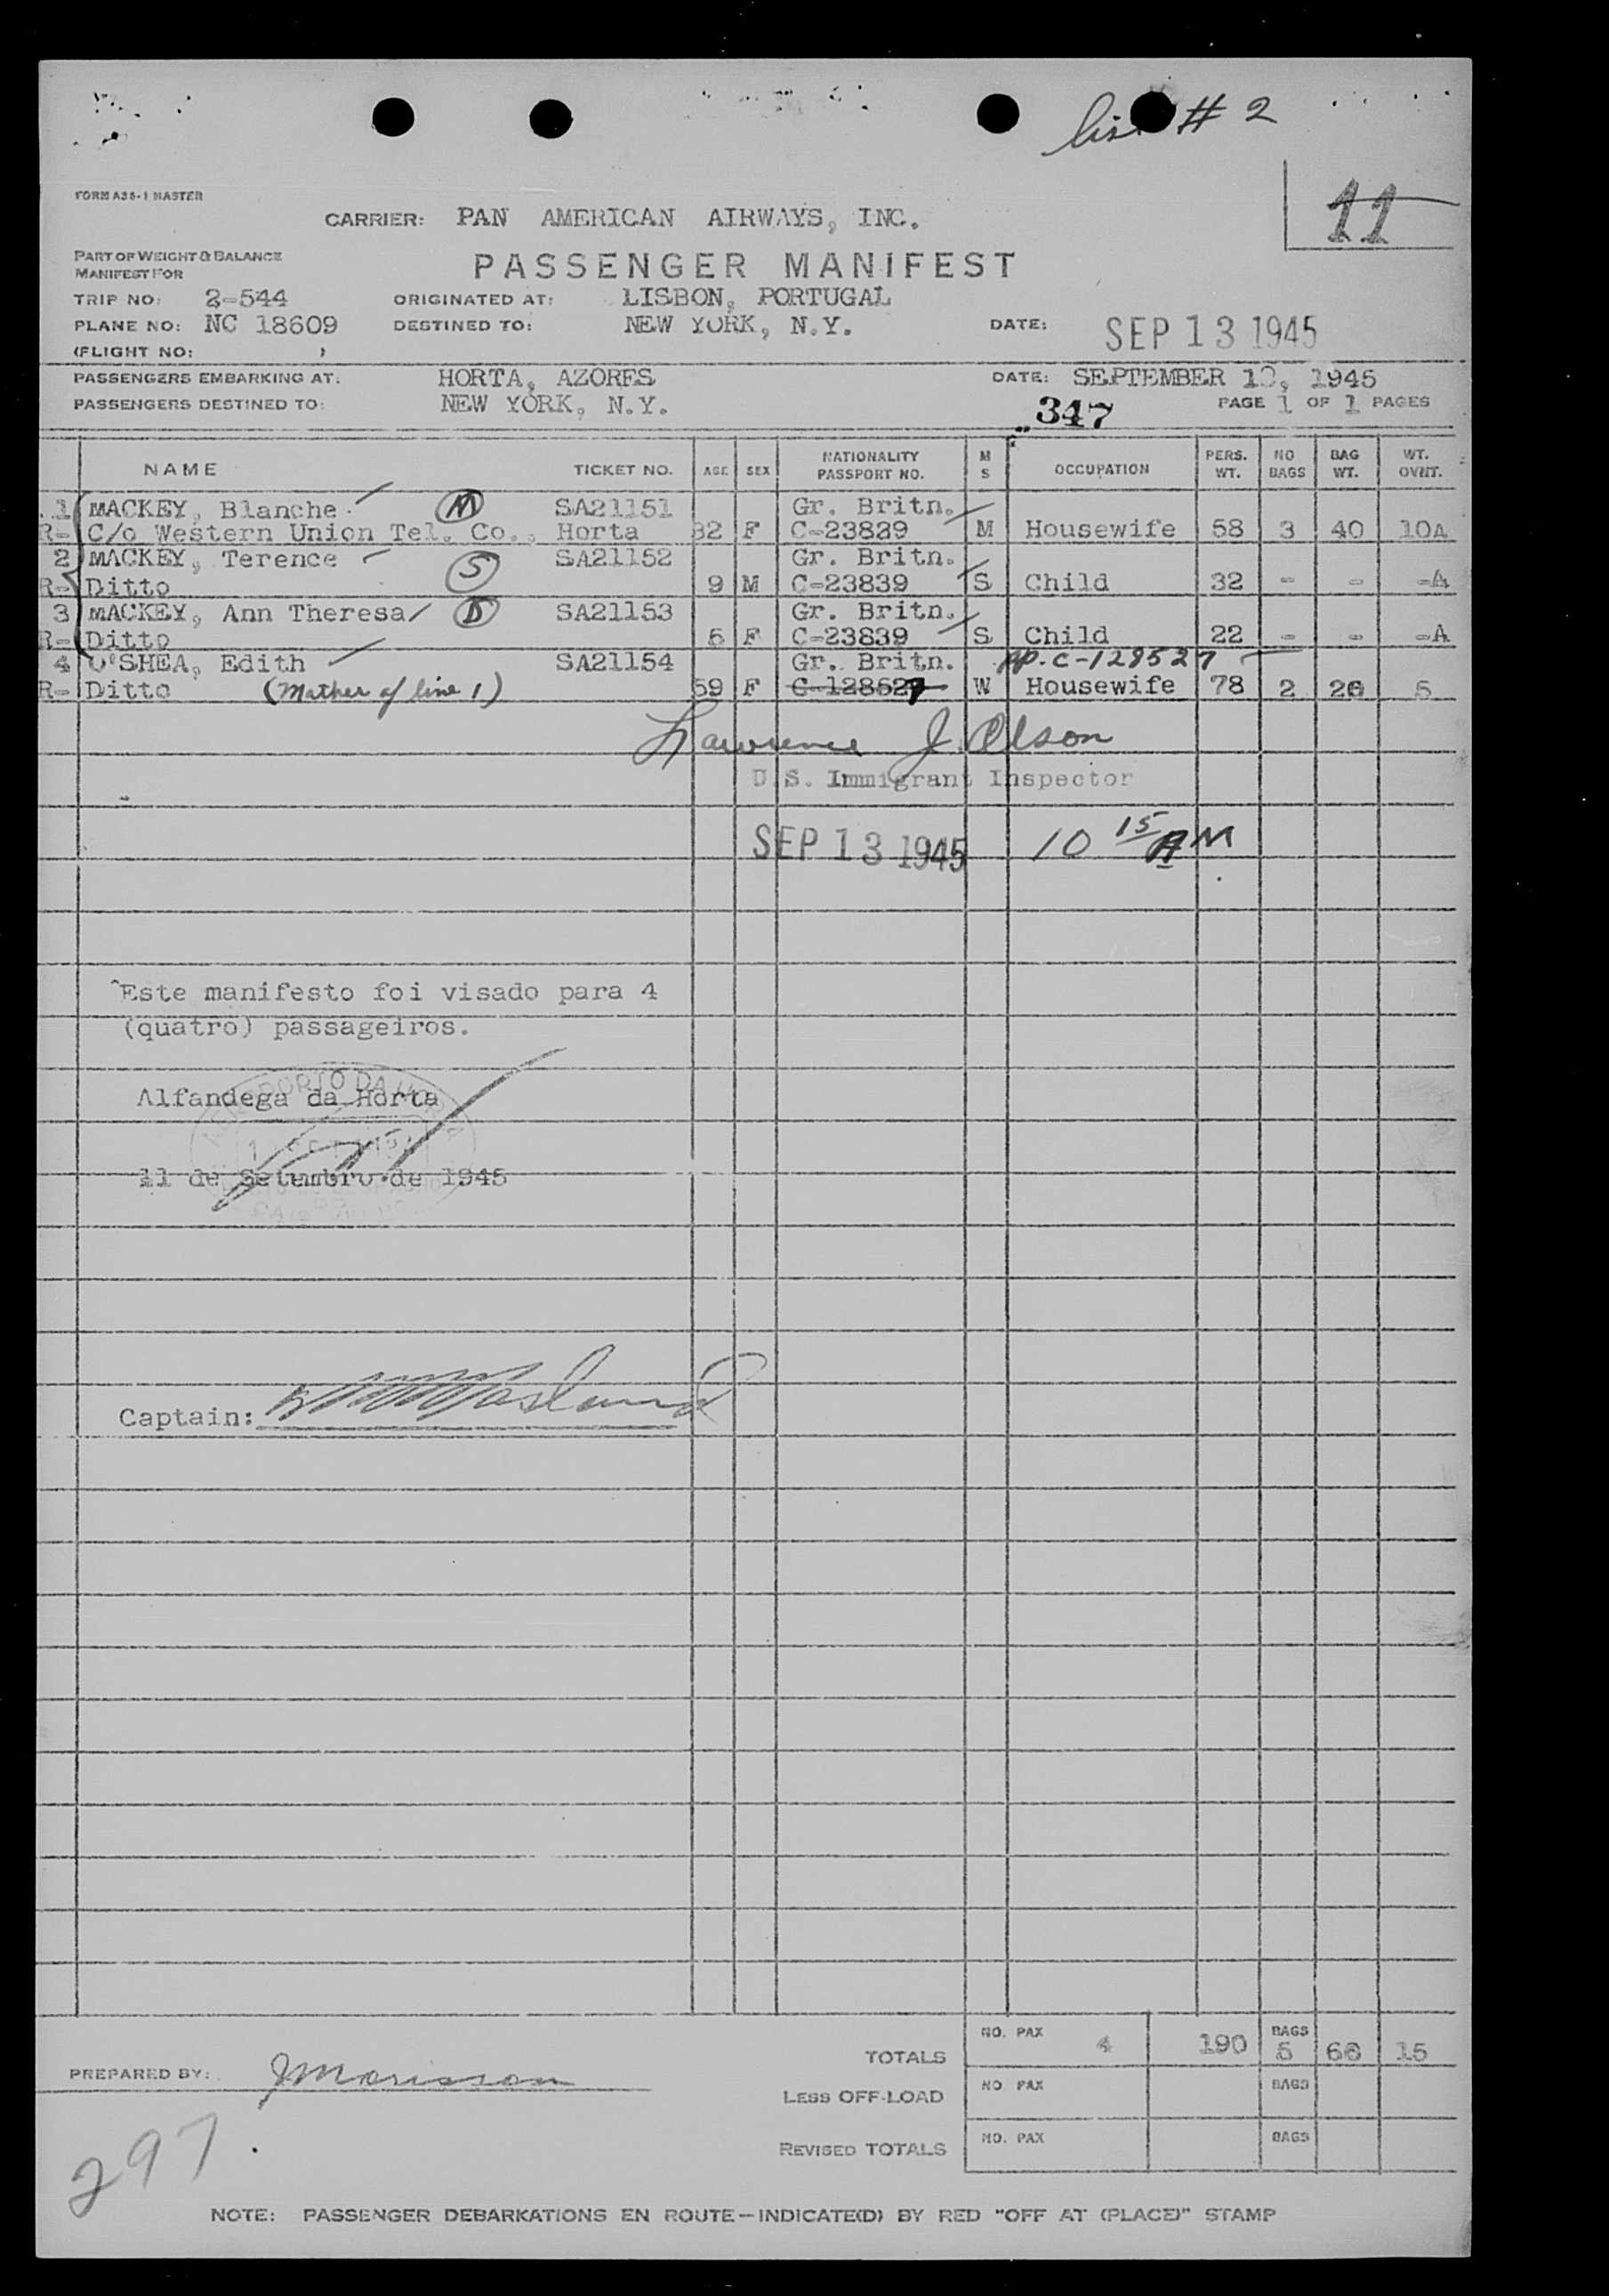 list # 2
11
FORM A36-1 MASTER
CARRIER: PAN AMERICAN AIRWAYS, INC.
PART OF WEIGHT & BALANCE
MANIFEST FOR
PASSENGER MANIFEST
TRIP NO: 2-544 ORIGINATED AT: LISBON, PORTUGAL
PLANE NO: NC 18609 DESTINED TO: NEW YORK, N.Y. DATE: SEP 13 1945
(FLIGHT NO: )
PASSENGERS EMBARKING AT: HORTA, AZORES DATE: SEPTEMBER 1 , 1945
PASSENGERS DESTINED TO: NEW YORK, N.Y. 347 PAGE 1 OF 1 PAGES
NAME TICKET NO. AGE SEX NATIONALITY PASSPORT NO. M S OCCUPATION PERS. WT. NO BAGS BAG WT. WT. OVNT.
1 MACKEY, Blanche M SA21151 Gr. Britn.
R- C/o Western Union Tel. Co., Horta 32 F C-23839 M Housewife 58 3 40 10A
2 MACKEY, Terence S SA21152 Gr. Britn.
R- Ditto 9 M C-23839 S Child 32 - - -A
3 MACKEY, Ann Theresa D SA21153 Gr. Britn.
R- Ditto 5 F C-23839 S Child 22 - - -A
4 O'SHEA, Edith SA21154 Gr. Britn. pp. C-128527
R- Ditto (Mother of line 1) 59 F C-128527 W Housewife 78 2 26 5
Lawrence J. Olson
U.S. Immigrant Inspector
SEP 13 1945 10 15 AM
Este manifesto foi visado para 4
(quatro) passageiros.
Alfandega da Horta
11 de Setembro de 1945
Captain:
TOTALS NO. PAX 4 190 BAGS 5 66 15
PREPARED BY: JMorisson
LESS OFF-LOAD NO PAX BAGS
REVISED TOTALS NO. PAX BAGS
297
NOTE: PASSENGER DEBARKATIONS EN ROUTE—INDICATE(D) BY RED "OFF AT (PLACE)" STAMP